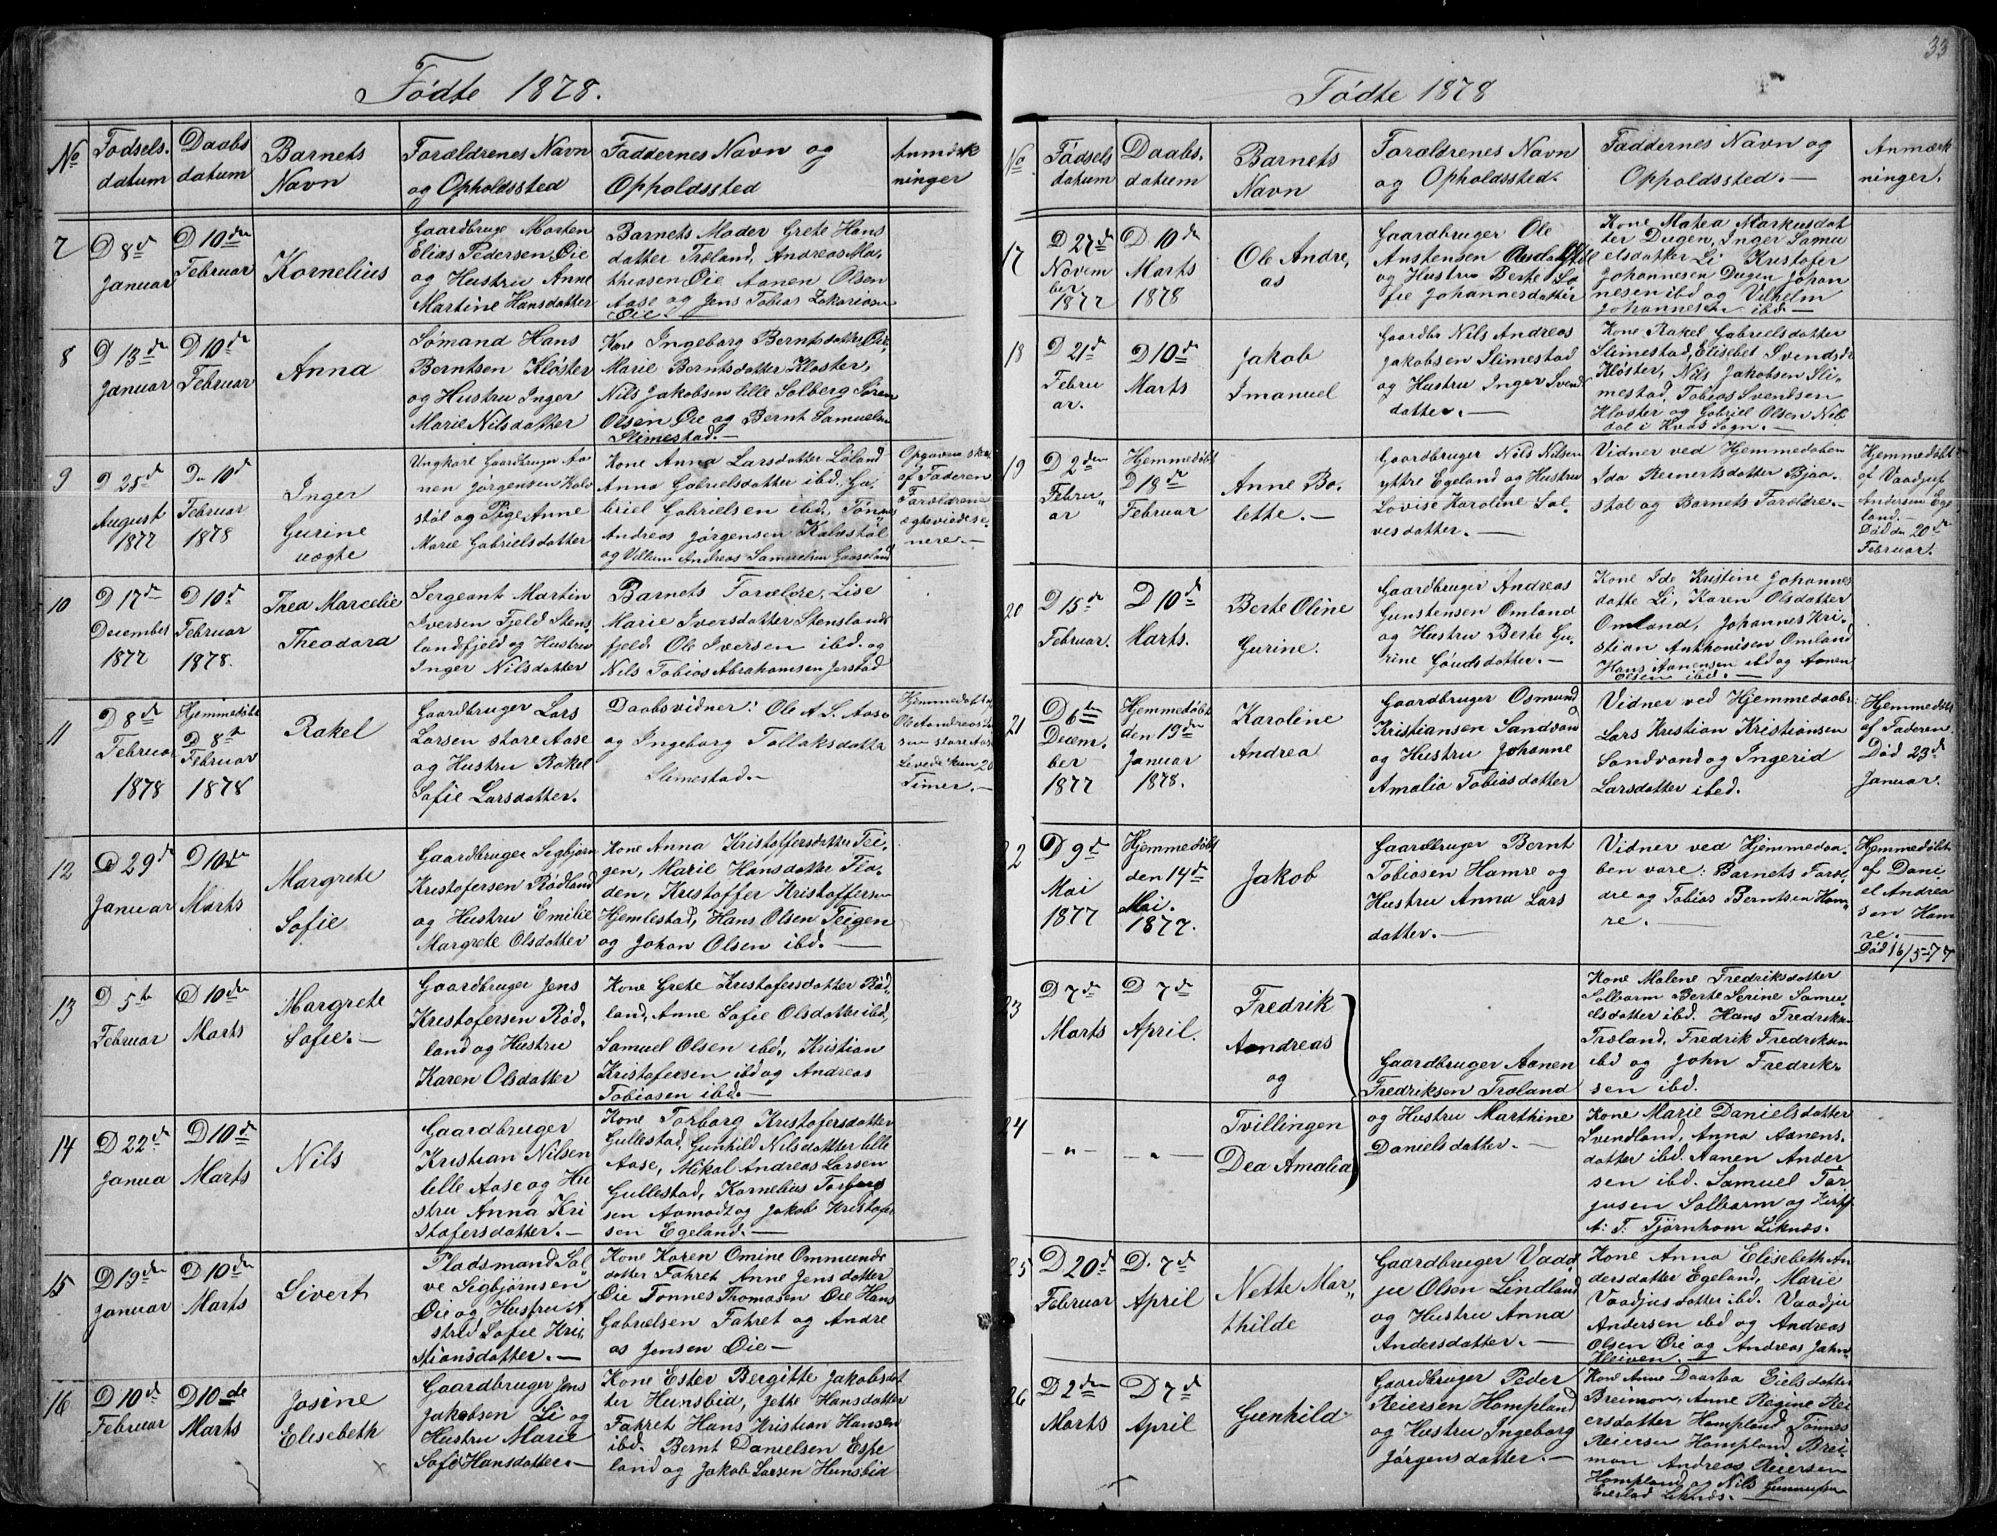 Fødte 1878.
No
Fødsels-
datum
Daabs
datum
Barnets
Navn
Forældrenes Navn
og Opholdssted
Faddernes Navn og
Opholdssted
Anmærk
ninger
7
D 8d
Januar
D 10de
Februar
Kornelius
Gaardbruge Morten
Elias Pedersen Øie
og Hustru Anne
Martine Hansdatter
Barnets Moder Grete Hans
datter Træland, Andreas Ma-
thiasen Øie Aanen Olsen
Aase og Jens Tobias Zakariasen
Øie
8
D 13de
Januar
D 10de
Februar
Anna
Sømand Hans
Berntsen Kløster
og Hustru Inger
Marie Nilsdatter
Kone Ingeborg Berntsdatter Øie,
Marie Berntsdatter Kloster,
Nils Jakobsen lille Solberg Søren
Olsen Øie og Bernt Samuelsen
Slimestad.
9
D 25d
August
1877
Dn 10d
Februar
1878
Inger
Gurine
uægte
Ungkarl Gaardbruger Aa
nen Jørgensen Kalv
støl og Pige Anne
Marie Gabrielsdatter
Kone Anna Larsdatter Løland
Anna Gabrielsdatter ibd. Ga-
briel Gabrielsen ibd, Tønnes
Andreas Jørgensen Kalvstøl
og Villum Andreas Samuelsen Gaaseland
Opgavens sker
af Faderen
Forældrene
ægteviedese-
nere.
10
D 17de
December
1877
D 10d
Februar
1878.
Thea Marcelie
Theodora
Sergeant Martin
Iversen Fjeld Stens
landfjeld og Hustru
Inger Nilsdatter
Barnets Forældre, Lise
Marie Iversdatter Stenslands
fjeld Ole Iversen ibd. og
Nils Tobias Abrahamsen Jerstad
11
D 8de
Februar
1878
Hjemmedøbt
D 8d
Februar
1878
Rakel
Gaardbruger Lars
Larsen store Aase
og Hustru Rakel
Sofie Larsdatter.
Daabsvidner: Ole A. L. Aase
og Ingeborg Tollaksdatter
Slimestad.
Hjemmedøbt af
Ole Andreas Lar
sen store Aase
Levede kun 20
Timer.
12
D 29de
Januar
D 10de
Marts
Margrete
Sofie
Gaardbruger Segbjørn
Kristofersen Rødland
og Hustru Emilie
Margrete Olsdatter
Kone Anna Kristoffersdatter Tei-
gen, Marie Hansdatter Fio-
den, Kristoffer Kristoffersen
Hjemlestad, Hans Olsen Teigen
og Johan Olsen ibd.
13
D 5te
Februar
D 10de
Marts
Margrete
Sofie.
Gaardbruger Jens
Kristofersen Rød-
land og Hustru
Karen Olsdatter
Kone Grete Kristofersdatter Rød-
land, Anne Sofie Olsdatter ibd,
Samuel Olsen ibd., Kristian
Kristofersen ibd og Andreas
Tobiasen ibd.
14
D 22de
Janua
D 10de
Marts
Nils
Gaardbruger
Kristian Nilsen
lille Aase og Hu
stru Anna Kri
stofersdatter.
Kone Torborg Kristofersdatter
Gullestad, Gunhild Nilsdatter lille
Aase, Mikal Andreas Larsen
Gullestad, Kornelius Torfers
sen Aamodt og Jakob Kristofer
sen Egeland.
15
D 19de
Januar
D 10de
Marts
Sivert
Pladsmand Sal
ve Sigbjørnsen
Øie og Hustru A
strid Sofie Kri-
stiansdatter.
Kone Karen Omine Ommunds
datter Fahret Anne Jensdatter
Øie Tønnes Thomasen Øie Hans
Gabrielsen Fahret og Andre
as Jensen Øie
16
D 10d
Februar
D 10de
Marts
Josine
Elisebeth
Gaardbruger Jens
Jakobsen Li og
Hustru Marie
Sofie Hansdatter.
Kone Ester Bergitte Jakobsdat
ter Hunsbid, Jette Hansdatter
Fahret Hans Kristian Hansen
ibd. Bernt Danielsen Espe
land og Jakob Larsen Hunsbid
33
Fødte 1878
No
Fødsels
datum
Daabs.
datum
Barnets
Navn
Forældrenes Navn
og Opholdssted.
Faddernes Navn og
Opholdssted.
Anmærk
ninger.
17
D 27d
Novem
ber
1877
D 10de
Marts
1878
Ole Andre,
as
Gaardbruger Ole
Anstensen
og Hustru Berte So
fie Johannesdatter
Kone Matea Markusdat
ter Dugen, Inger Samu
elsdatter Li Kristofer
Johannesen Dugen Johan
nesen ibd og Vilhelm
Johannesen ibd.
18
D 21d
Febru
ar.
D 10de
Marts
Jakob
Imanuel
Gaardbr Nils Andreas
Jakobsen Slimestad
og Hustru Inger Svend
datter.
Kone Rakel Gabrielsdatter
Slimestad, Elisebet Svendsdr
Kløster, Nils Jakobsen Sli-
mestad, Tobias Svendsen
Kloster og Gabriel Olsen Net-
dal i Kvås Sogn.
19
D 2den
Febru
ar
Hjemmedøbt
D 18de
Februar
Anne Bo-
lette.
Gaardbruger Nils Nilsen
yttre Egeland og Hustru
Lovise Karoline Sal-
vesdatter.
Vidner ved Hjemmedaaben
Ida Reinertsdatter Bjaa-
stol og Barnets Forældre.
Hjemmedøbt
af Vaadjuf
Andersen Ege
land.
Død dn 20de
Februar.
20
D 15de
Februar.
D 10de
Marts.
Berte Oline
Gurine.
Gaardbruger Andreas
Gunstensen Omland
og Hustru Berte Gu-
rine Gaudsdatter.
Kone Ide Kristine Johannes
datte Li, Karen Olsdatter
Omland, Johannes Kri-
stian Anthonisen Omland
Hans Aanensen ibd og Aanen
Olsen ibd.
21
D 6te
Decem-
ber
1877
Hjemmedøbt
den 19de
Januar
1878.
Karoline
Andrea
Gaardbruger Osmund
Kristiansen Sandvan
og Hustru Johanne
Amalia Tobiasdatter
Vidner ved Hjemmedaabe:
Lars Kristian Kristiansen
Sandvand og Ingerid
Larsdatter ibed.
Hjemmedøbt
af Faderen.
Død 23de
Januar.
22
D 9d
Mai
1877
Hjemmedøbt
den 14de
Mai.
1877.
Jakob
Gaardbruger Bernt
Tobiasen Hamre og
Hustru Anna Lars
datter.
Vidner ved Hjemmedaa-
ben vare: Barnets Foræl-
dre og Tobias Berntsen Ham
re.
Hjemmedøbt
af Dani
el Andrea
sen Ham
re.
Død 16/5-77
23
D 7de
Marts
D 7de
April.
Fredrik
Aandreas
og
Gaardbruger Aanen
Fredriksen Træland
og Hustru Marthine
Danielsdatter.
Kone Malene Fredriksdatter
Solbarm Berte Serine Samu-
elsdatter ibd. Hans Fredriksen
Træland, Fredrik Fredriksen
ibd og John Fredrik-
sen ibd.
24
— " —
— " —
Tvillingen
Dea Amalia
Kone Marie Danielsdatter
Svendland, Anna Aanens-
datter ibd. Aanen Ander
sen ibd. Samuel Tar
jusen Solbarm og Kirks.
A. T. Tjørnhom Liknes.
25
D 20d
Februar
D. 7de
April
Nette Mar"
thilde
Gaardbruger Vaad"
ju Olsen Lindland
og Hustru Anna
Andersdatter.
Kone Anna Elisebeth An
dersdatter Egeland, Marie
Vaadjusdatter ibd. Vaadju
Andersen ibd og Andreas
Olsen Øie og Andreas Jahn
Kleiven.
26
D 2den
Marts
D 7de
April
Gunhild
Gaardbruger Peder
Reiersen Hompland
og Hustru Ingeborg
Jørgensdatter.
Kone Anne Daartea Eielsdatter
Breimon, Anne Regine Rei
ersdatter Hompland Tønnes
Reiersen Hompland, Brei-
mon Andreas Reiersen
Hompland og Nils Gunnufsen
Eiestad Liknes.